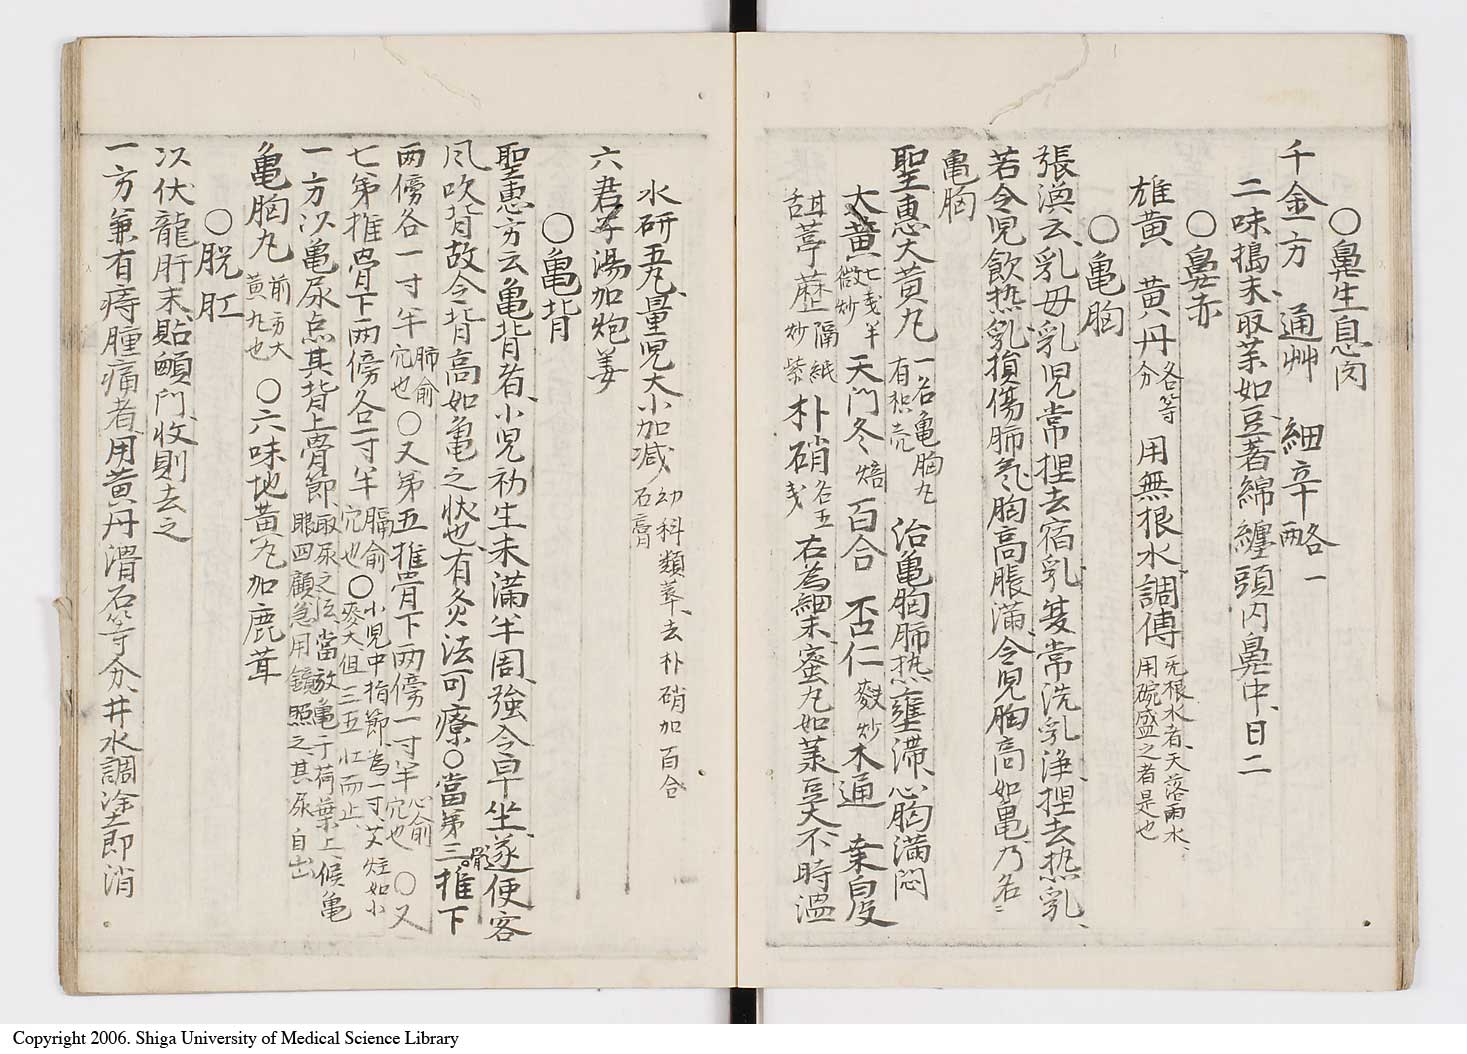 ○鼻生息肉
千金方 通艸 細辛略一
二味搗末取茱如豆著綿纏頭內鼻中日二
○鼻赤
雄黄 黄丹各等分 用無根水調傅无根水者天落雨水用碗盛之者是也
○亀胸
張渙云乳母乳児常捏去宿乳夋常洗乳浄捏去热乳
若令児飲热乳損傷肺気胸高脹滿令児胸高如亀乃名
亀胸
聖惠大黄丸一名亀胸丸有枳壳 治亀胸肺热壅滞心胸滿悶
大黄七戋半微炒天门冬焙百合 杏仁麩炒木通 桒白皮
甜葶藶隔紙炒紫朴硝各五戋右為細末蜜丸如菉豆大不時温
水研五丸量児大小加减幼科類萃去朴硝加百合石膏
六君子湯加炮姜
○亀背
聖惠方云亀背者小児初生未滿半周強令早坐遂便客
风吹背故令背高如亀之状也有灸法可療○當第三推骨下
两傍各一寸半肺俞穴也○又第五推骨下两傍一寸半心俞穴也○又
七第推骨下两傍各一寸半膈俞穴也○小児中指節為一寸艾炷如小麥大但三五壮而止
一方以亀尿点其背上骨節取尿之法當放亀于荷葉上候亀眼四顧急用鏡照之其尿自出
亀胸丸前方大黄丸也 ○六味地黄丸加鹿茸
○脱肛
以伏龍肝末貼顖门收則去之
一方兼有痔腫痛者用黄丹滑石等分井水調塗即消
Copyright 2006. Shiga University of Medical Science Library